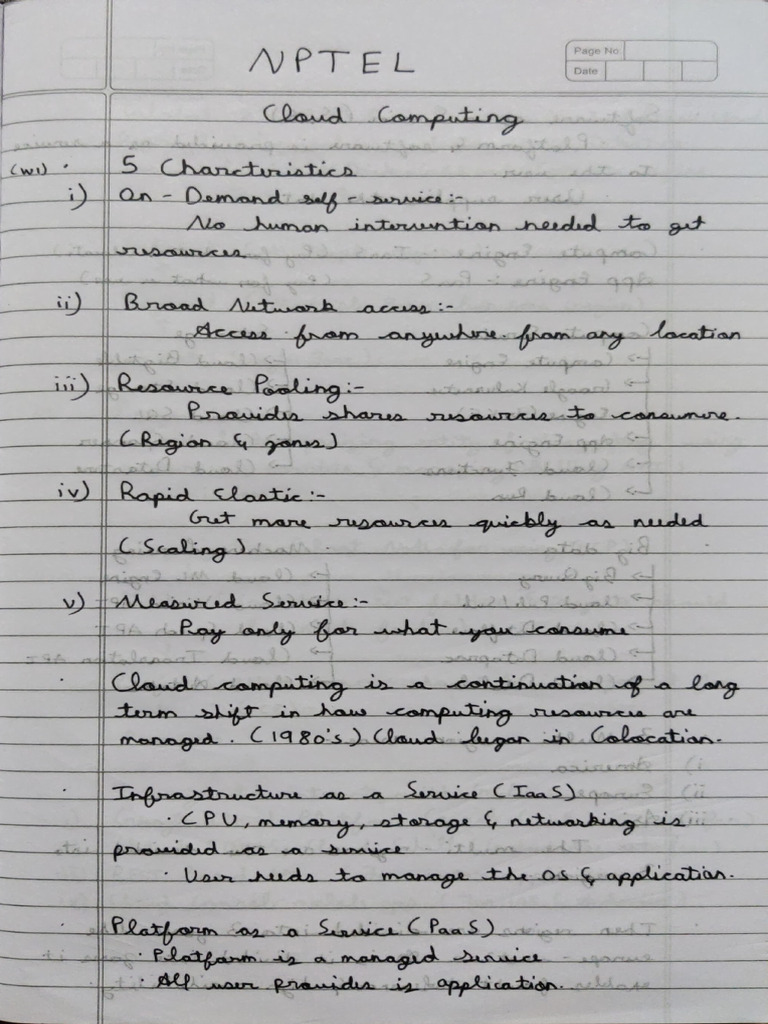 NPTEL
Page No.
Date
Cloud Computing
(W1) · 5 Charcteristics
i) On - Demand self - service :-
No human intervention needed to get
resources
ii) Broad Network access :-
Access from anywhere from any location
iii) Resource Pooling :-
Provides shares resources to consumere.
(Region & zones)
iv) Rapid Elastic :-
Get more resources quickly as needed
(Scaling)
v) Measured Service :-
Pay only for what you consume
· Cloud computing is a continuation of a long
term shift in how computing resources are
managed. (1980's) Cloud began in Colocation.
· Infrastructure as a Service (IaaS)
· CPU, memory, storage & networking is
provided as a service
· User needs to manage the OS & application.
· Platform as a Service (PaaS)
· Platform is a managed service
· All user provides is application.